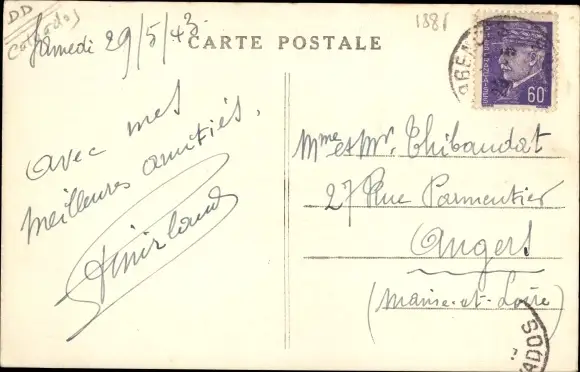 DD
Calvados
Samedi 29/5/43
CARTE POSTALE
1881
60c
avec mes
meilleures amitiés.
Mme et Mr. Thibaudat
27 Rue Parmentier
Angers
(Maine-et-Loire)
ADOS